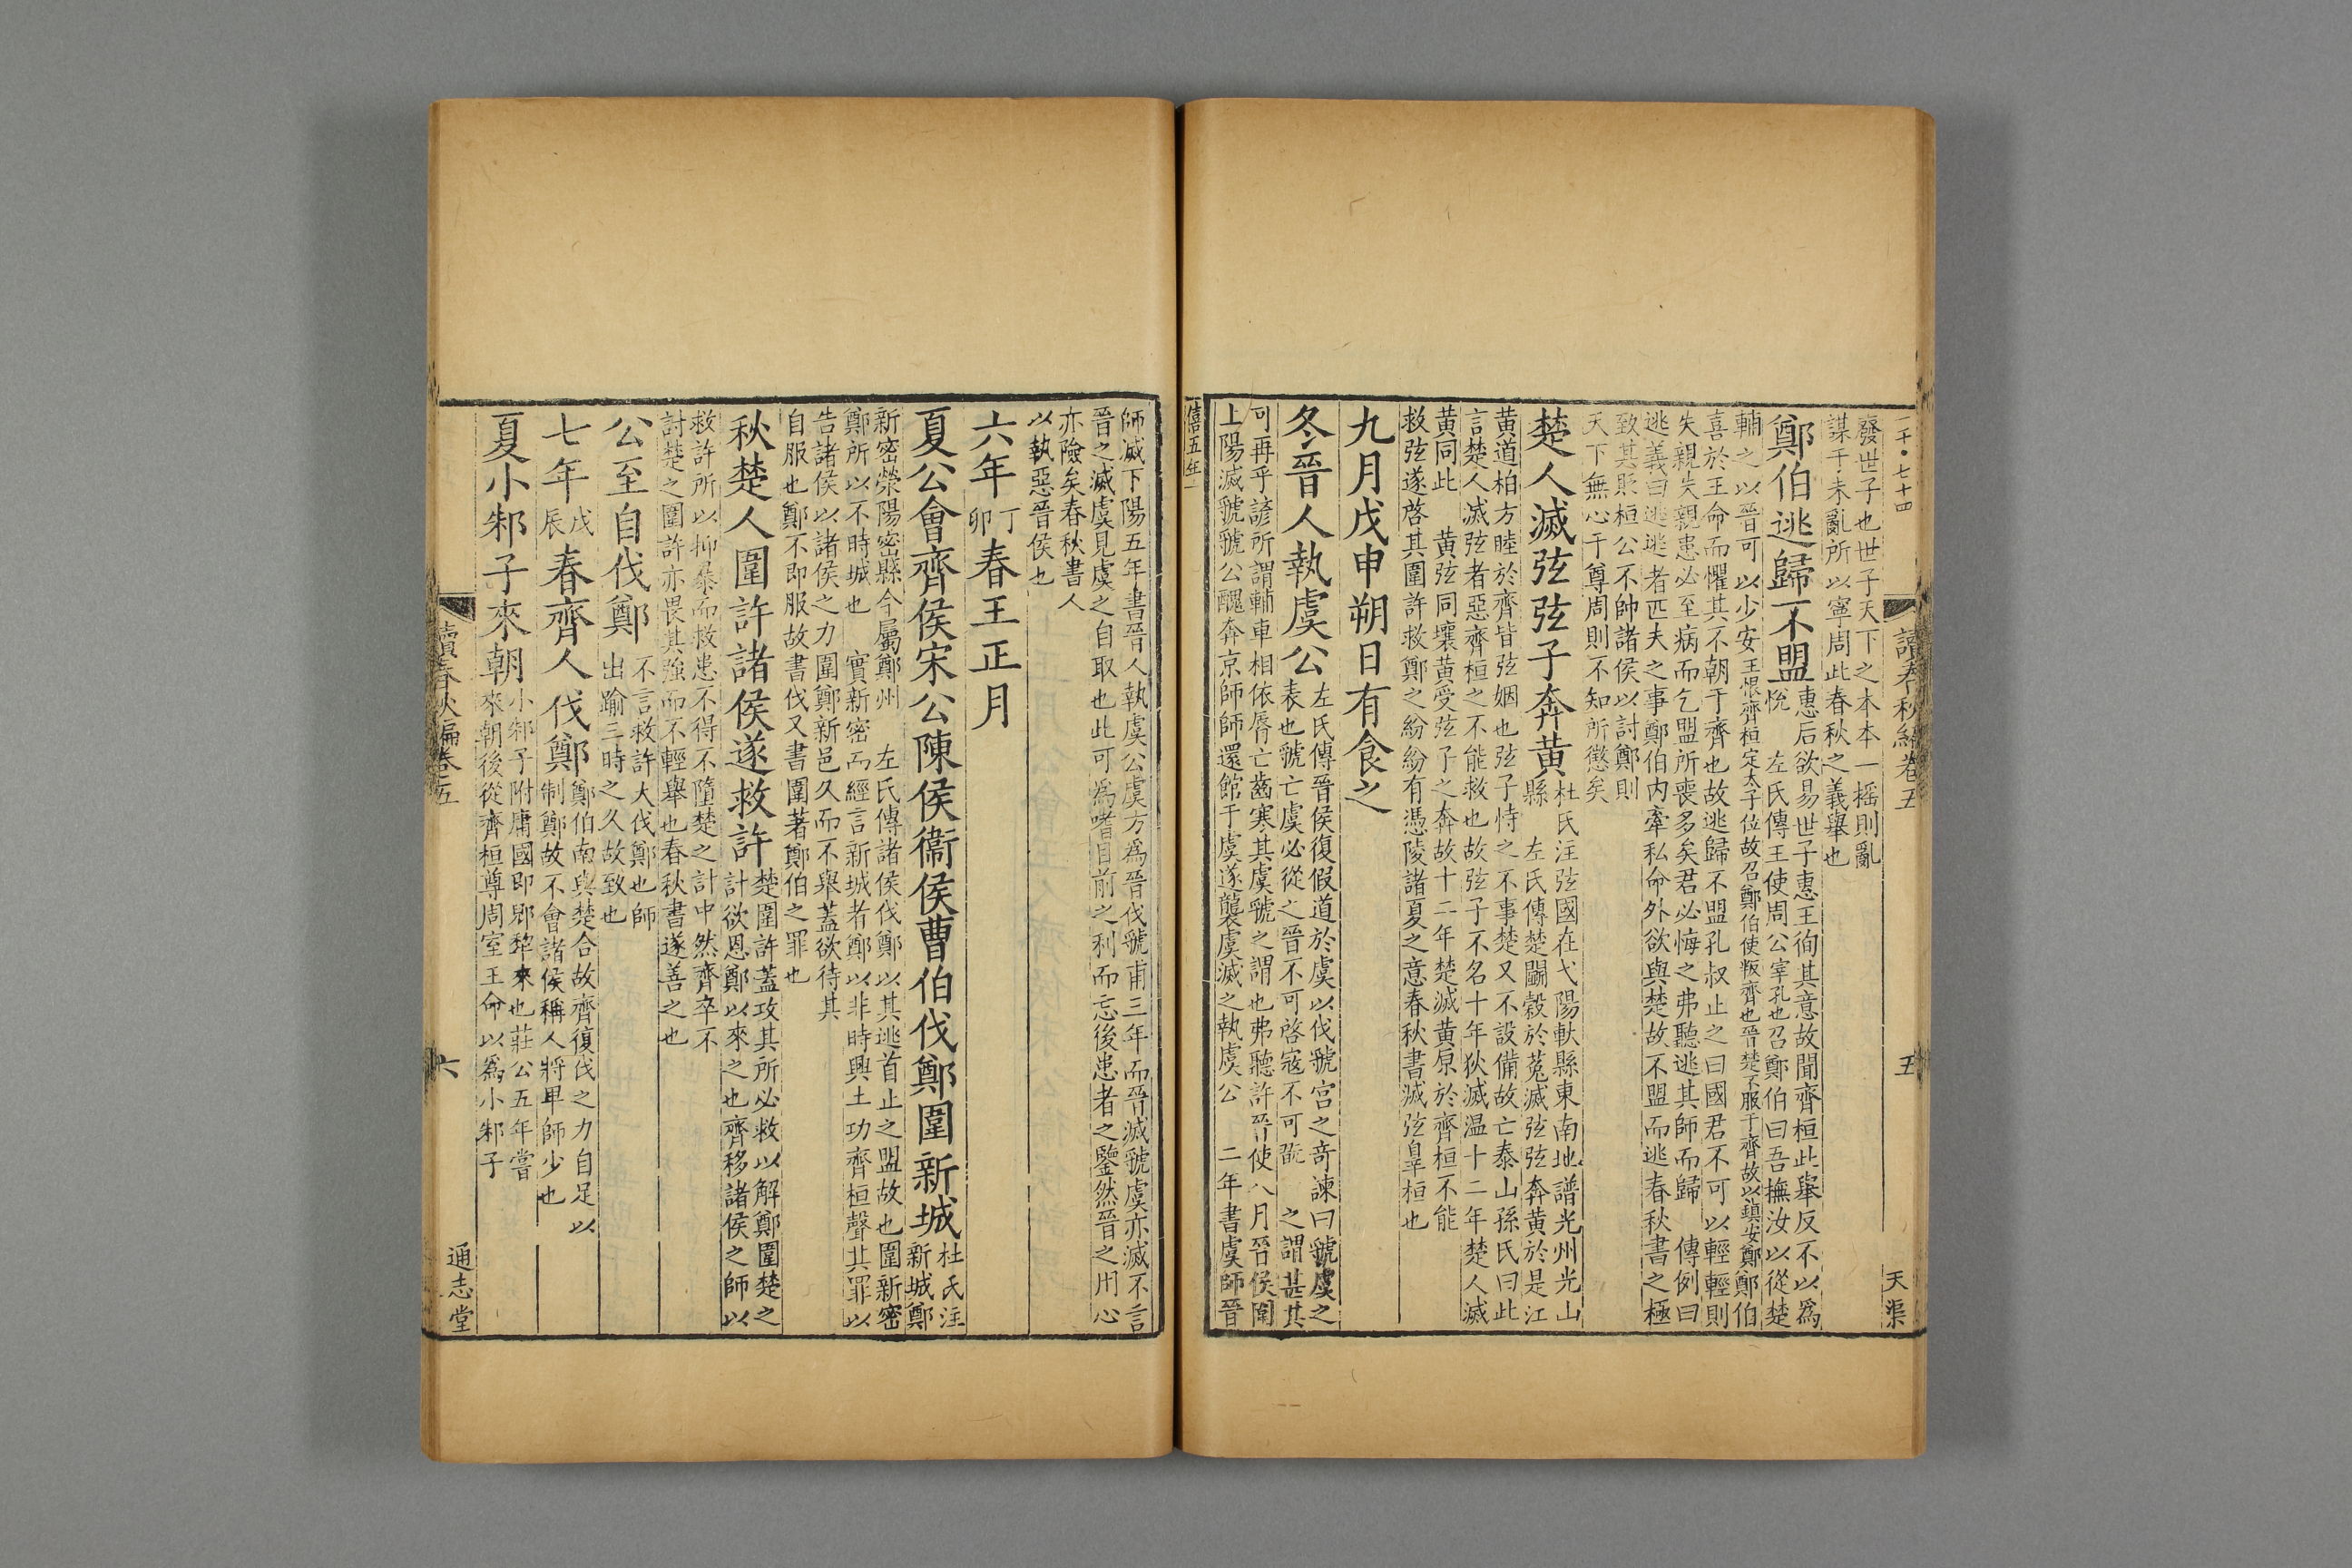 一千〇七十四
讀春秋編卷五
五
天渠
發世子也世子天下之本本一摇則亂
謀于未亂所以寧周此春秋之義舉也
鄭伯逃歸不盟
惠后欲易世子惠王徇其意故聞齊桓此舉反不以為
恱 左氏傳王使周公宰孔也召鄭伯曰吾撫汝以從楚
輔之以晉可以少安王恨齊桓定太子位故召鄭伯使叛齊也晉楚不服于齊故以鎮安鄭鄭伯
喜於王命而懼其不朝于齊也故逃歸不盟孔叔止之曰國君不可以輕輕則
失親失親患必至病而乞盟所喪多矣君必悔之弗聽逃其師而歸 傳例曰
逃義曰逃逃者匹夫之事鄭伯内牽私命外欲與楚故不盟而逃春秋書之極
致其貶桓公不帥諸侯以討鄭則
天下無心于尊周則不知所懲矣
楚人滅弦弦子奔黄
杜氏注弦國在弋陽軑縣東南地譜光州光山
縣 左氏傳楚鬬穀於菟滅弦弦奔黄於是江
黄道柏方睦於齊皆弦姻也弦子恃之不事楚又不設備故亡泰山孫氏曰此
言楚人滅弦者惡齊桓之不能救也故弦子不名十年狄滅温十二年楚人滅
黄同此 黄弦同壤黄受弦子之奔故十二年楚滅黄原於齊桓不能
救弦遂啓其圍許救鄭之紛紛有憑陵諸夏之意春秋書滅弦辠桓也
九月戊申朔日有食之
冬晉人執虞公
左氏傳晉侯復假道於虞以伐虢宫之竒諫曰虢虞之
表也虢亡虞必從之晉不可啓寇不可翫 之謂甚其
可再乎諺所謂輔車相依脣亡齒寒其虞虢之謂也弗聽許晉使八月晉侯圍
上陽滅虢虢公醜奔京師師還館于虞遂襲虞滅之執虞公 二年書虞師晉
僖五年
師滅下陽五年書晉人執虞公虞方為晉伐虢甫三年而晉滅虢虞亦滅不言
晉之滅虞見虞之自取也此可為嗜目前之利而忘後患者之鑒然晉之用心
亦險矣春秋書人
以執惡晉侯也
六年丁卯春王正月
夏公會齊侯宋公陳侯衞侯曹伯伐鄭圍新城
杜氏注
新城鄭
新密滎陽密縣今屬鄭州 左氏傳諸侯伐鄭以其逃首止之盟故也圍新密
鄭所以不時城也 實新密而經言新城者鄭以非時興土功齊桓聲其罪以
告諸侯以諸侯之力圍鄭新邑久而不舉蓋欲待其
自服也鄭不即服故書伐又書圍著鄭伯之罪也
秋楚人圍許諸侯遂救許
楚圍許蓋攻其所必救以解鄭圍楚之
計欲恩鄭以來之也齊移諸侯之師以
救許所以抑暴而救患不得不隨楚之計中然齊卒不
討楚之圍許亦畏其強而不輕舉也春秋書遂善之也
公至自伐鄭
不言救許大伐鄭也師
出踰三時之久故致也
七年戊辰春齊人伐鄭
鄭伯南與楚合故齊復伐之力自足以
制鄭故不會諸侯稱人將卑師少也
夏小邾子來朝
小邾子附庸國即郳犂來也莊公五年嘗
來朝後從齊桓尊周室王命以為小邾子
讀春秋編卷五
六
通志堂